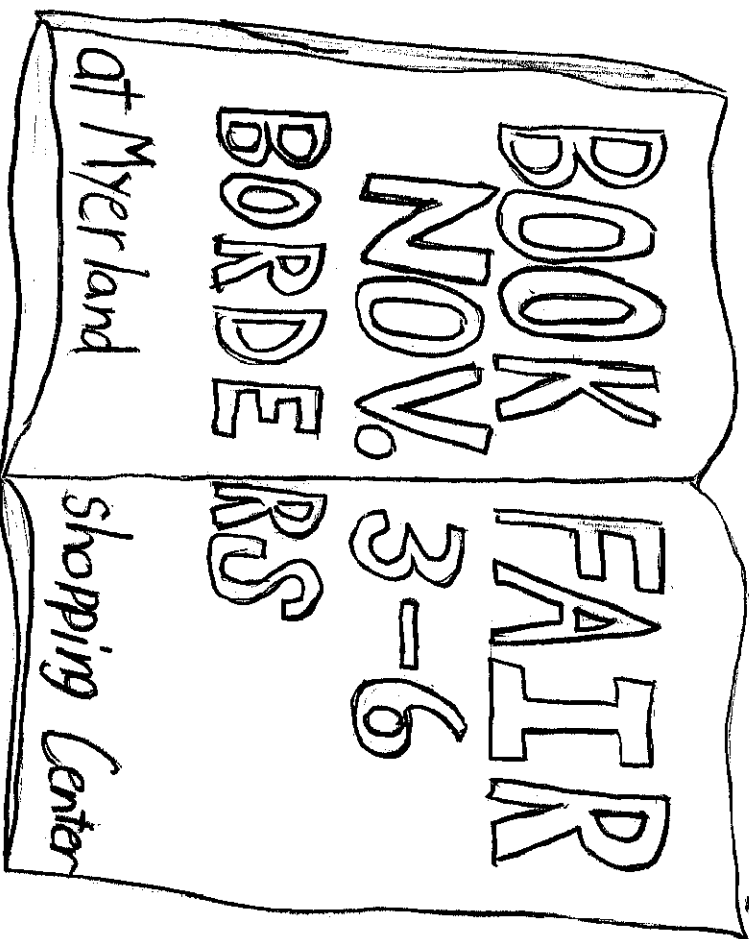 BOOK FAIR
NOV. 3-6
BORDERS
at Myerland Shopping Center